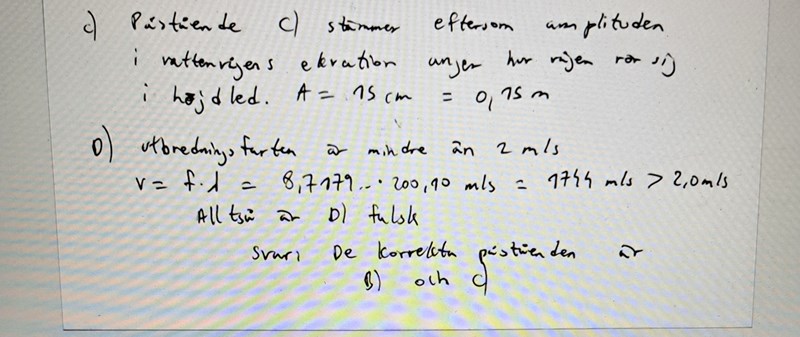 c) Påståen de C) stämmer eftersom amplituden
i vattenvågens ekvation anger hur vågen rör sij
i höjdled. A = 15 cm = 0,15 m
D) utbrednings farten är mindre än 2 m/s
v = f·λ = 8,7179... · 200,10 m/s = 1744 m/s > 2,0 m/s
Alltså är D) falsk
Svar: De korrekta påståenden är
B) och C)